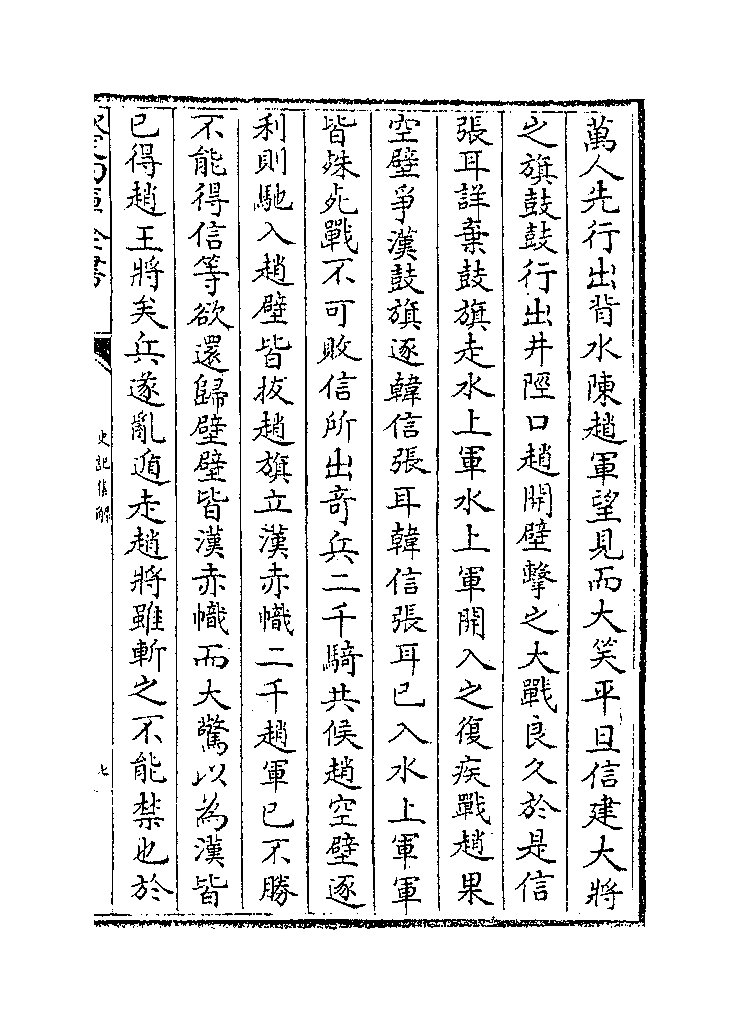 萬人先行出背水陳趙軍望見而大笑平旦信建大將
之旗鼓鼓行出井陘口趙開壁擊之大戰良久於是信
張耳詳棄鼓旗走水上軍水上軍開入之復疾戰趙果
空壁爭漢鼓旗逐韓信張耳韓信張耳已入水上軍軍
皆殊死戰不可敗信所出竒兵二千騎共候趙空壁逐
利則馳入趙壁皆拔趙旗立漢赤幟二千趙軍已不勝
不能得信等欲還歸壁壁皆漢赤幟而大驚以為漢皆
已得趙王將矣兵遂亂遁走趙將雖斬之不能禁也於
全書
史記集解
七